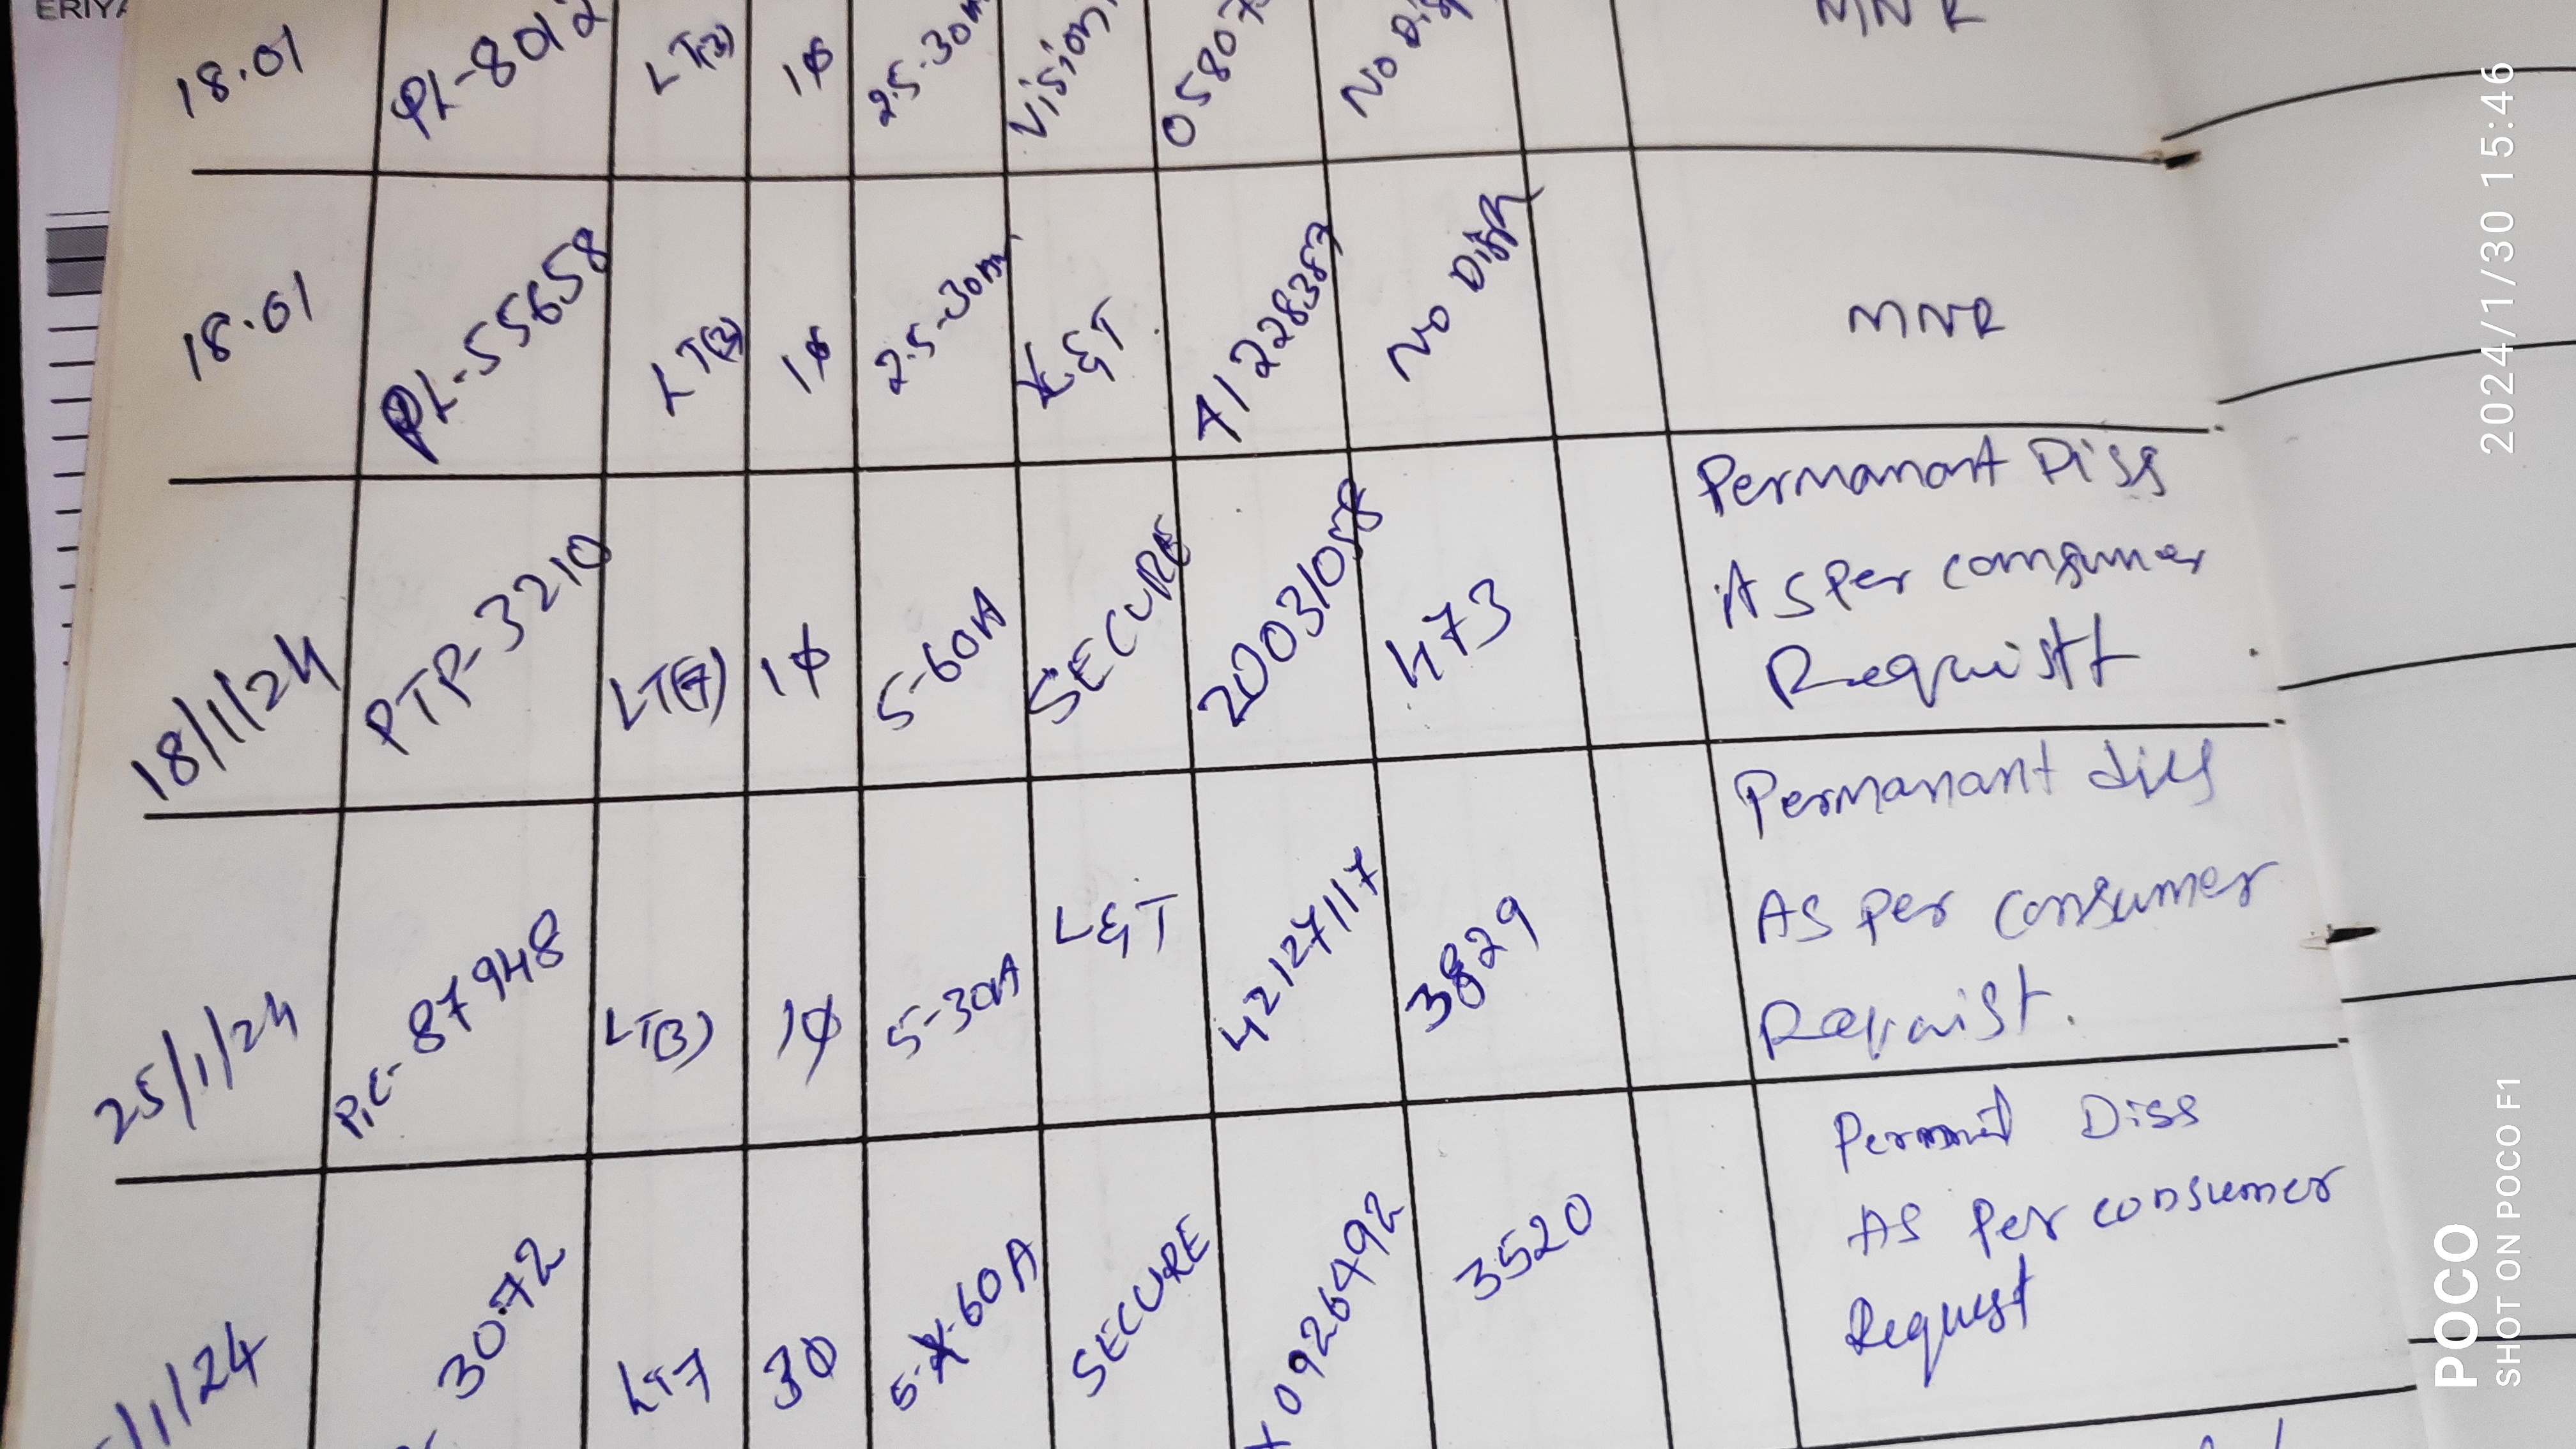 18.01 PL-8012 LT(3) 1ϕ 2.5-30m Vision 0580 No Dis MNR
18.01 PL-55658 LT(3) 1ϕ 2.5-30m L&T No Disp MNR
18/1/24 PTP-3210 LT(7) 1ϕ 5-60A SECURE 473 Permanant Diss
As Per consumer
Requistt
25/1/24 PLC-87948 LT(3) 1ϕ 5-30A L&T 42127117 3829 Permanant diss
As Per consumer
Requist.
/1/24 3072 LT7 3ϕ 5-60A SECURE 0926492 3520 Diss
As Per consumer
Request
2024/1/30 15:46
POCO
SHOT ON POCO F1